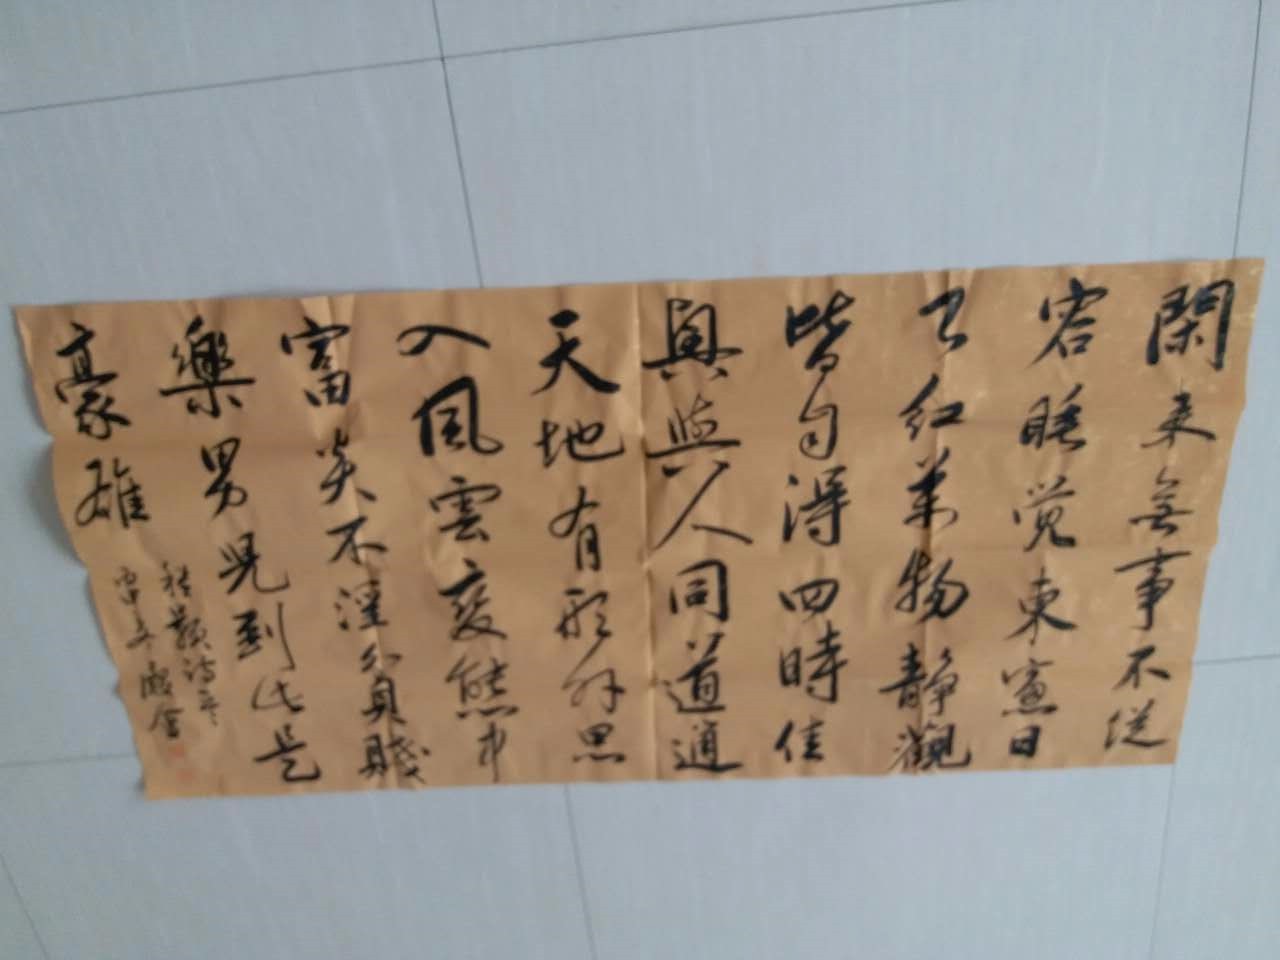 閑来無事不從
容睡觉東窓日
已红萬物静觀
皆自得四時佳
興與人同道通
天地有形外思
入風雲变態中
富贵不淫貧賤
樂男兒到此是
豪雄
程颢诗一首